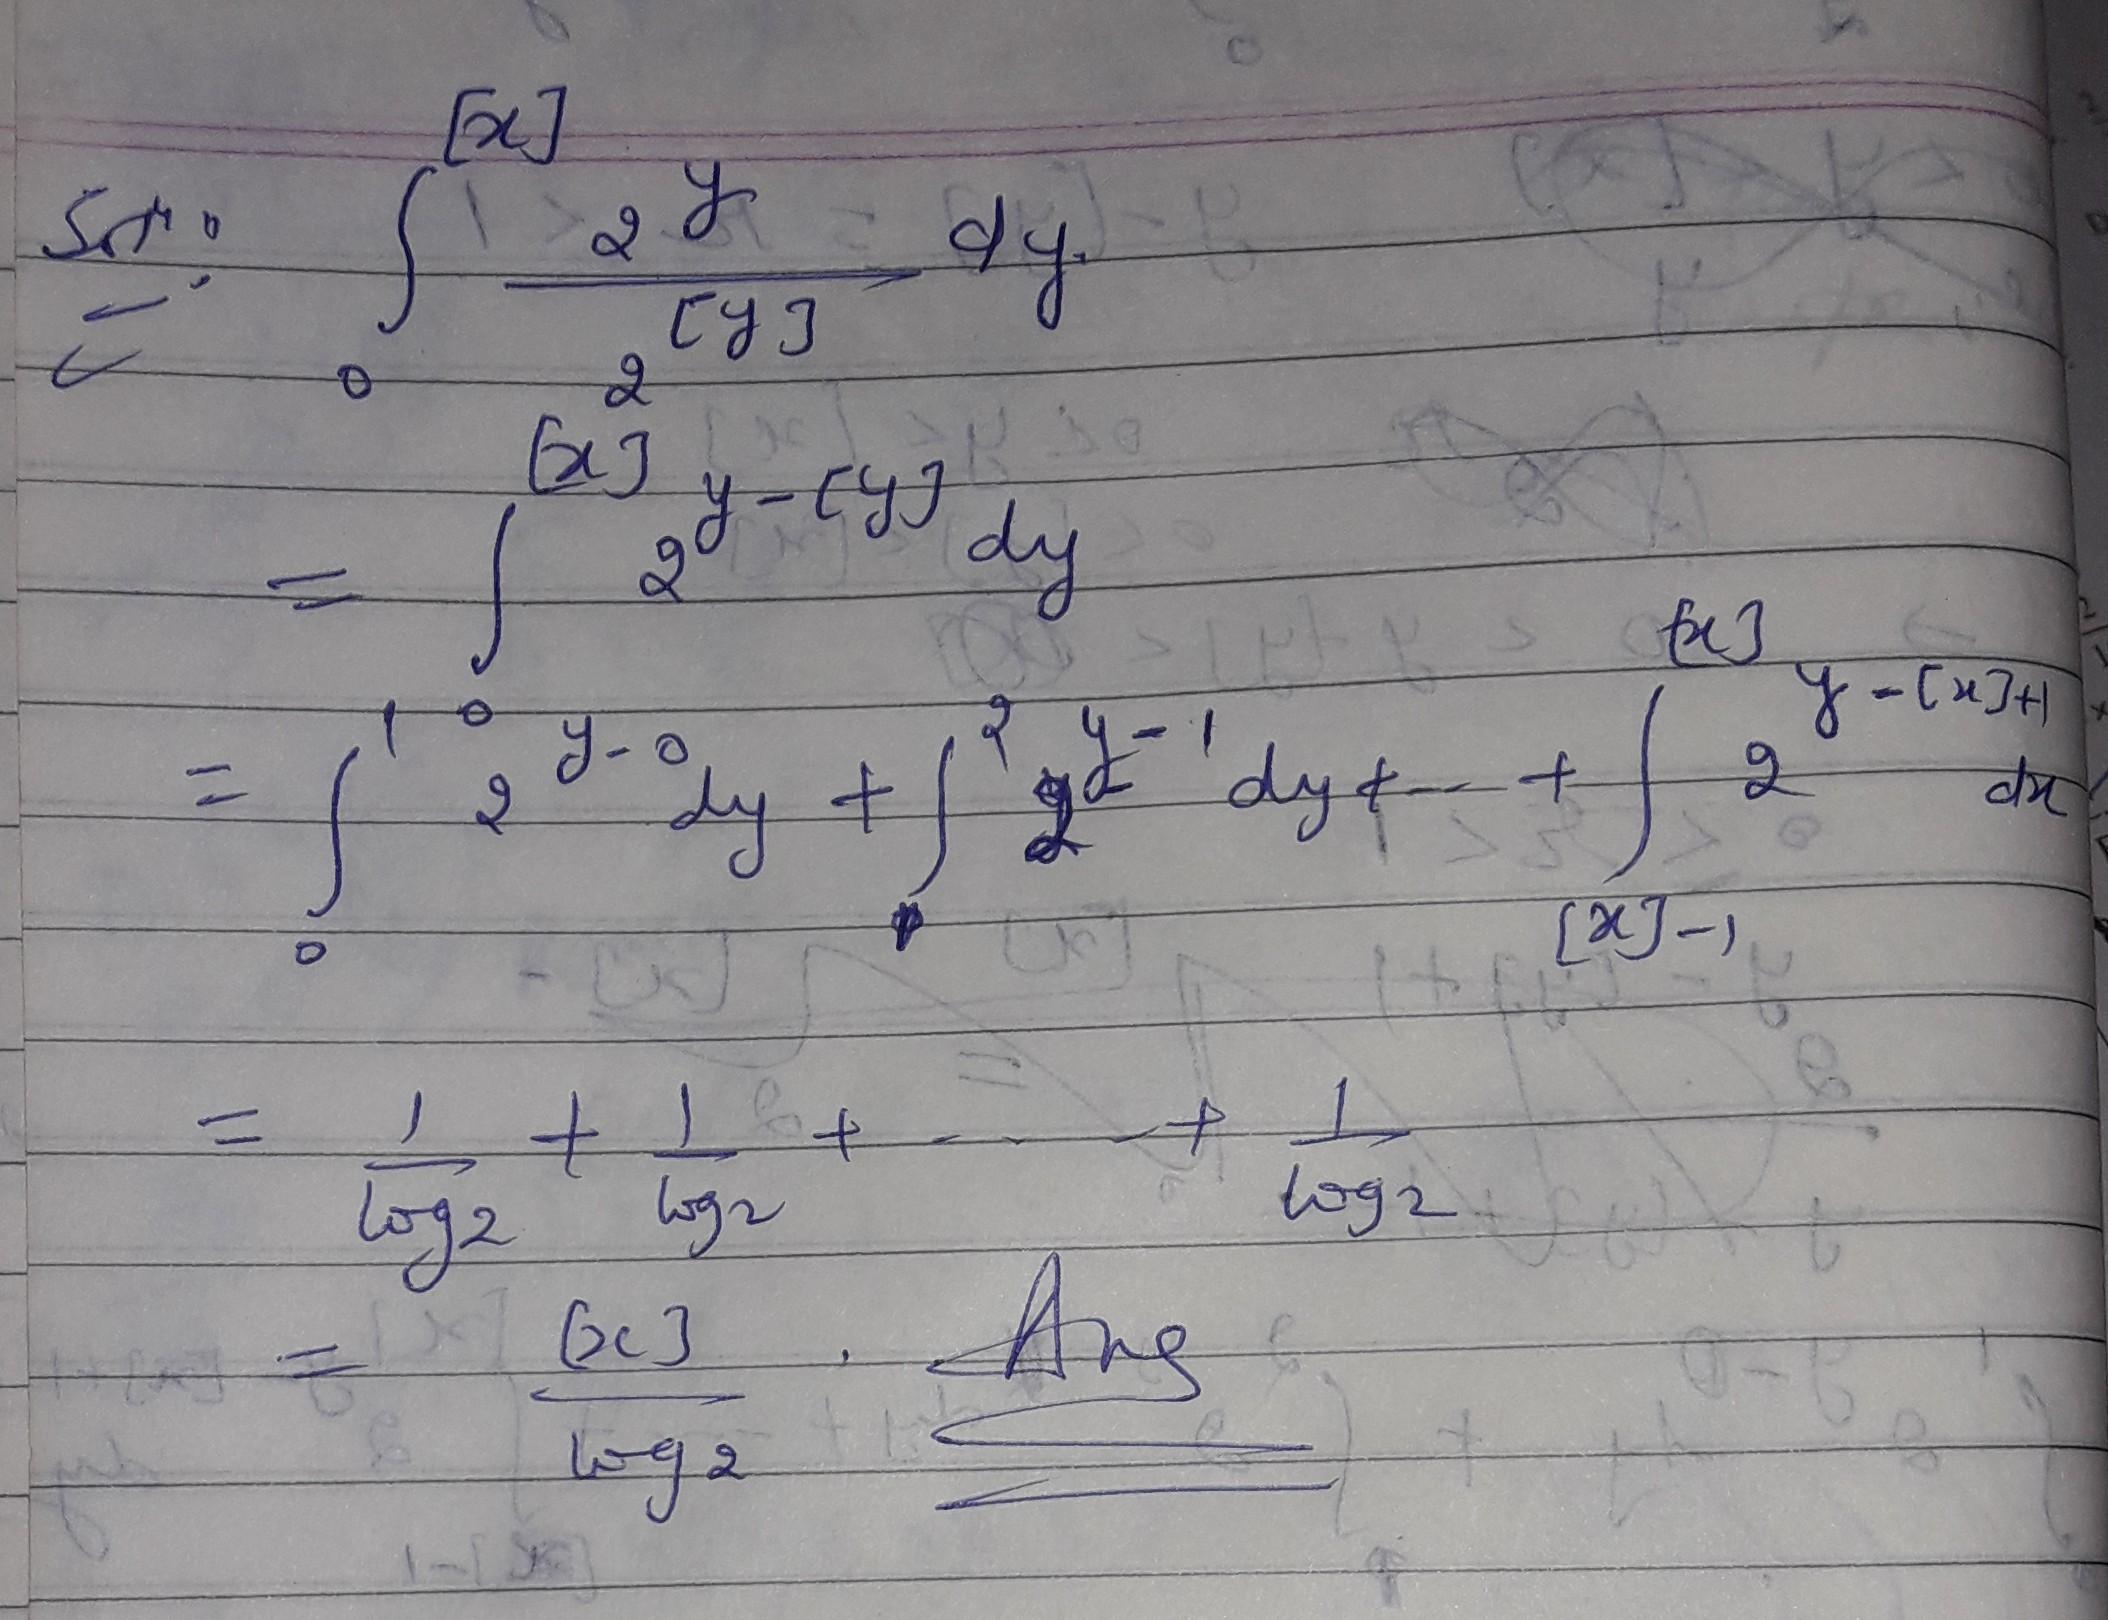 Sol: ∫_0^[x] 2^y / 2^[y] dy.
= ∫_0^[x] 2^(y-[y]) dy
= ∫_0^1 2^(y-0) dy + ∫_1^2 2^(y-1) dy + -- + ∫_([x]-1)^[x] 2^(y-[x]+1) dx
= 1/log2 + 1/log2 + - - - - + 1/log2
= [x]/log2 . Ans